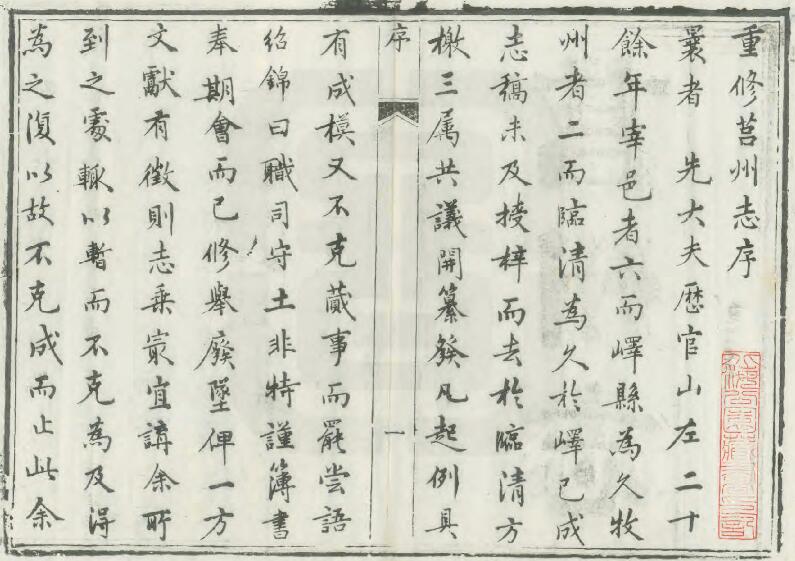 重修莒州志序
曩者　先大夫歷官山左二十
餘年宰邑者六而嶧縣為久牧
州者二而臨清為久於嶧已成
志稿未及授梓而去於臨清方
檄三属共議開纂發凡起例具
序
一
有成模又不克蕆事而罷尝語
绍錦曰職司守土非特謹簿書
奉期會而已修舉廢墜俾一方
文獻有徵則志乗宲宜講余所
到之處輙以暫而不克為及得
為之復以故不克成而止此余